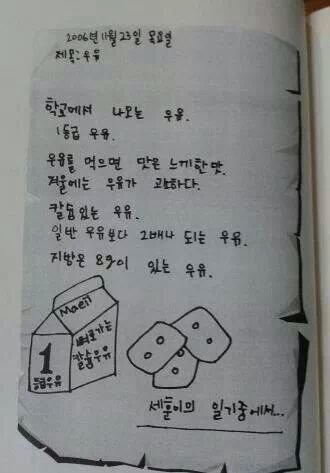 2006년 11월 23일 목요일
제목: 우유
학교에서 나오는 우유.
1등급 우유.
우유를 먹으면 맛은 느끼한 맛.
겨울에는 우유가 괜하다.
칼슘있는 우유.
일반 우유보다 2배나 되는 우유.
지방은 8g이 있는 우유.
Maeil
뼈로가는
칼슘우유
1
등급우유
세훈이의 일기중에서...